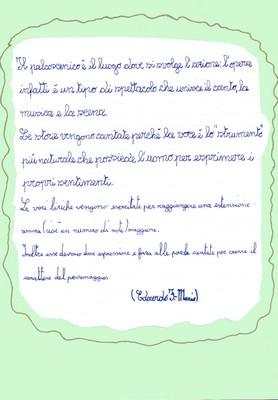 Il palcoscenico è il luogo dove si svolge l'azione: l'opera
infatti è un tipo di spettacolo che unisce il canto, la
musica e la scena.
Le storie vengono cantate perché la voce è lo "strumento"
più naturale che possiede l'uomo per esprimere i
propri sentimenti.
Le voci liriche vengono esercitate per raggiungere una estensione
sonora (cioè un numero di note) maggiore.
Inoltre esse devono dare espressione e forza alle parole cantate per creare il
carattere del personaggio.
(Edoardo F. Mario)